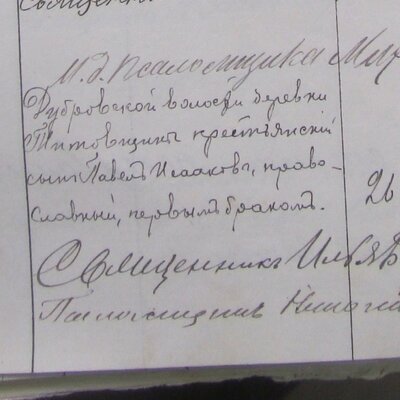 Священник
И. д. Псаломщика Мих
Дубровской волости деревни
Титовщинъ крестьянскій
сынъ Павелъ Исааковъ, право-
славный, первымъ бракомъ.
26
Священникъ Илья
Псаломщикъ Николай